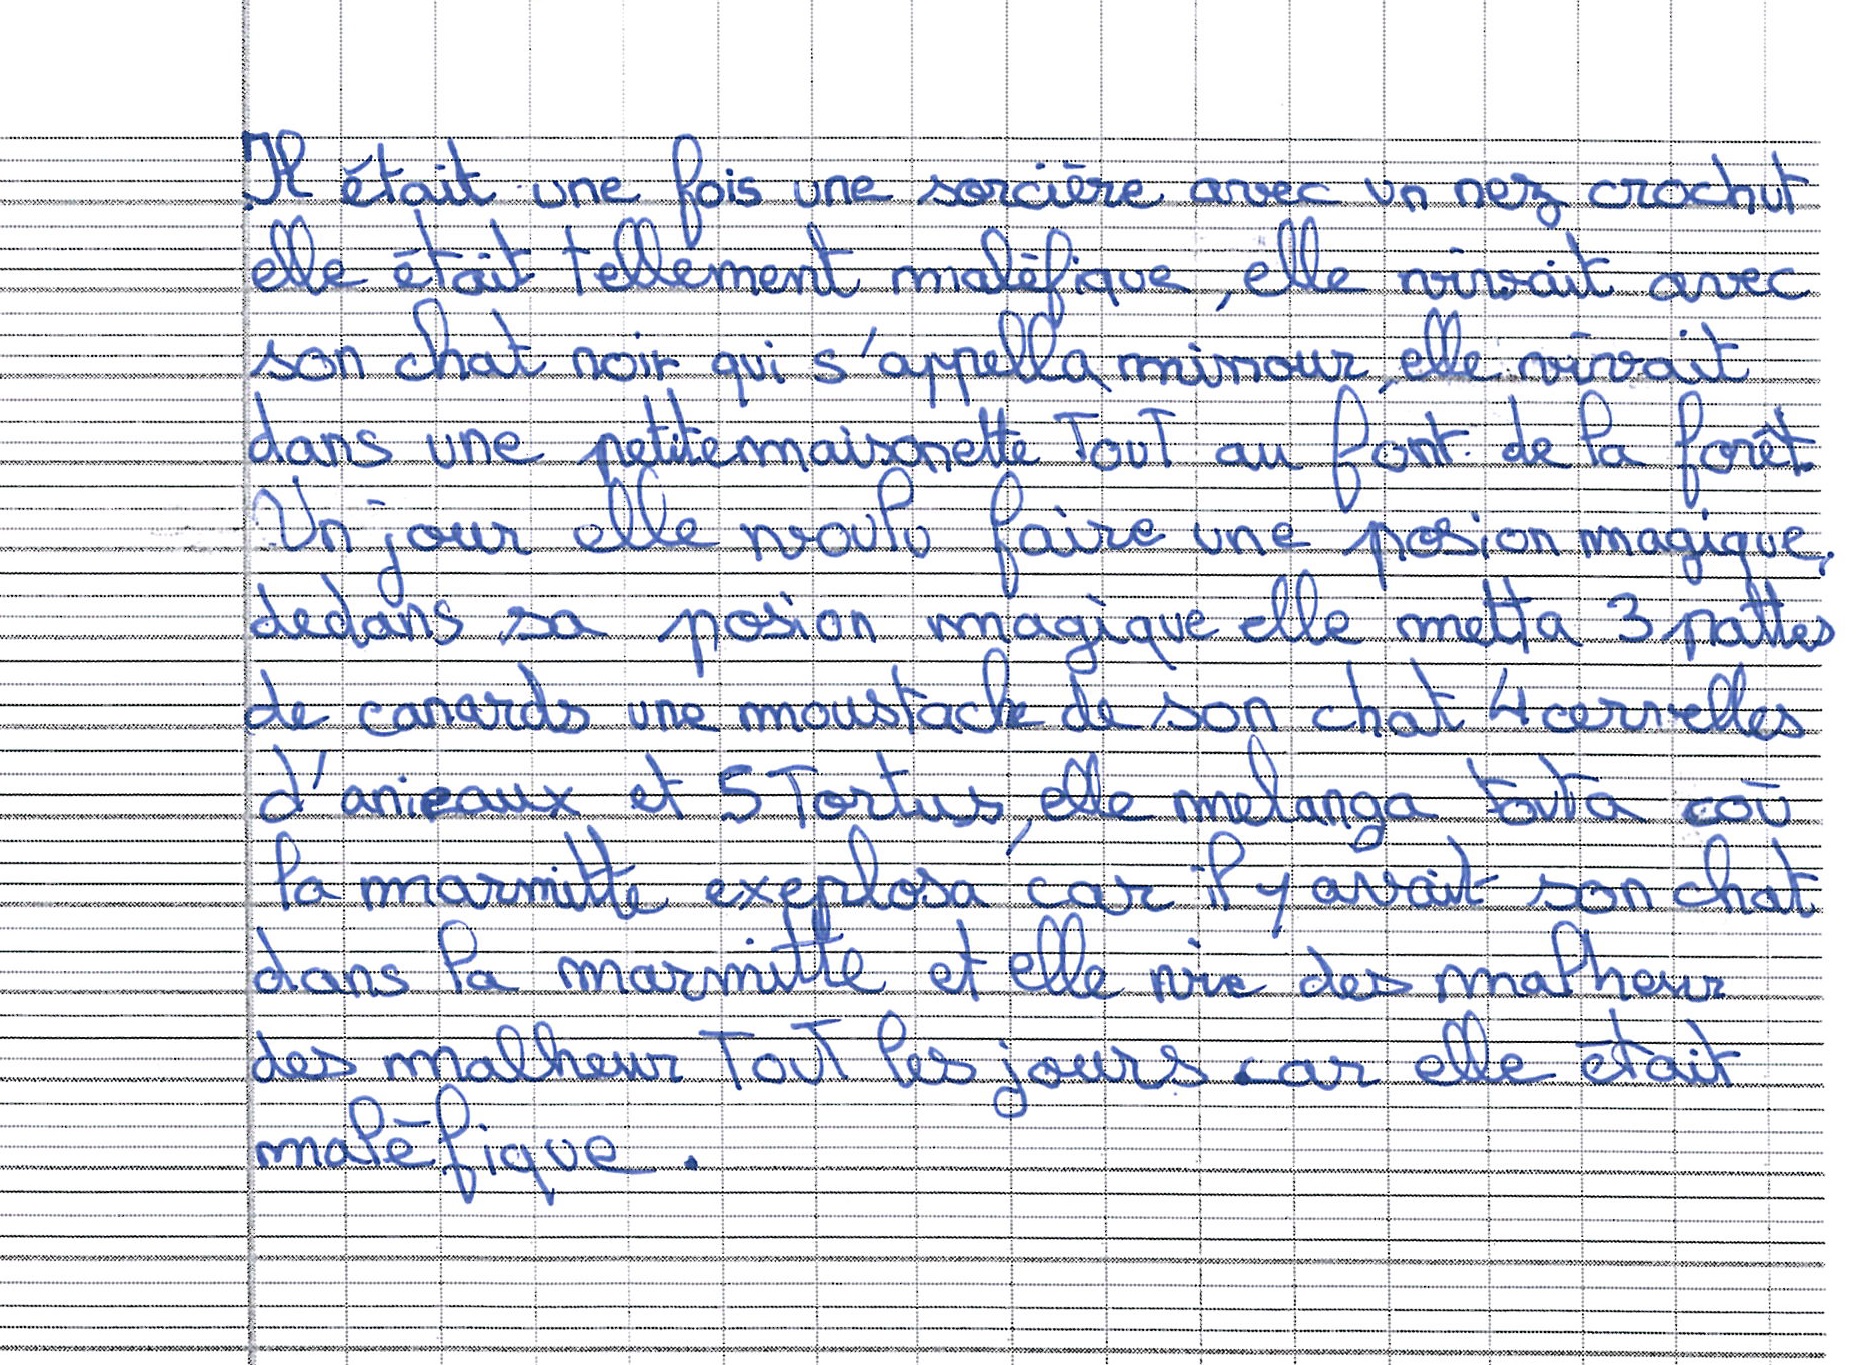 Il était une fois une sorcière avec un nez crochut
elle était tellement maléfique, elle vivait avec
son chat noir qui s'appella minour, elle vivait
dans une petite maisonette Tout au font de la forêt
Un jour elle voulu faire une posion magique,
dedans sa posion magique elle metta 3 pattes
de canards une moustache de son chat 4 cervelles
d'anieaux et 5 Tortus, elle melanga touta coù
la marmitte exeplosa car il y avait son chat
dans la marmitte et elle vie des malheur
des malheur Tout les jours car elle était
maléfique.